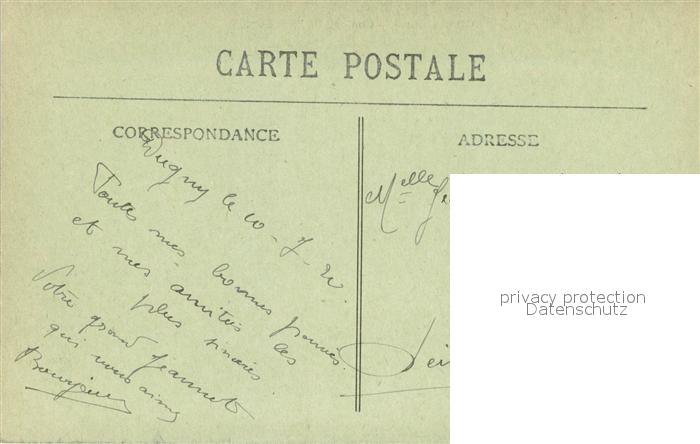 CARTE POSTALE
CORRESPONDANCE
ADRESSE
Dugny le 10-7-20.
Toutes mes bonnes pensées
et mes amitiés les
plus sincères
Votre grand Jeannot
qui vous aime
Melle Je
privacy protection
Datenschutz